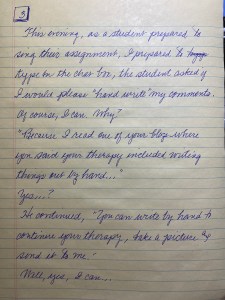 3
This evening, as a student prepared to
song their assignment, I prepared to
type in the chat box, the student asked if
I would please "hand write" my comments.
Of course, I can. Why?
"Because I read one of your blogs where
you said your therapy included writing
things out by hand..."
Yes...?
He continued, "You can write by hand to
continue your therapy, take a picture &
send it to me."
Well, yes, I can...